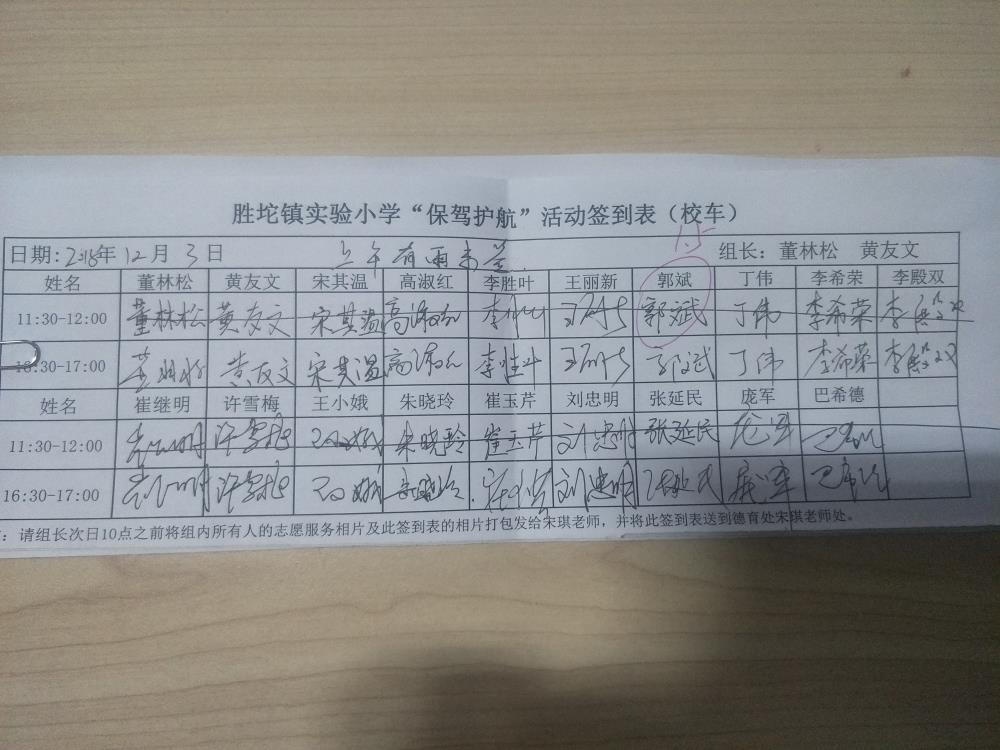 胜坨镇实验小学“保驾护航”活动签到表（校车）
1.5
日期: 2018年 12月 3日 上午有雨未签 组长: 董林松 黄友文
姓名 董林松 黄友文 宋其温 高淑红 李胜叶 王丽新 郭斌 丁伟 李希荣 李殿双
11:30-12:00 董林松 黄友文 宋其温 高淑红 郭斌 丁伟 李希荣 李殿双
16:30-17:00 黄友文 宋其温 高淑红 李胜叶 丁伟 李希荣 李殿双
姓名 崔继明 许雪梅 王小娥 朱晓玲 崔玉芹 刘忠明 张延民 庞军 巴希德
11:30-12:00 许雪梅 王小娥 朱晓玲 崔玉芹 刘忠明 张延民 庞军
16:30-17:00 许雪梅 王小娥 刘忠明 庞军
: 请组长次日10点之前将组内所有人的志愿服务相片及此签到表的相片打包发给宋琪老师，并将此签到表送到德育处宋琪老师处。